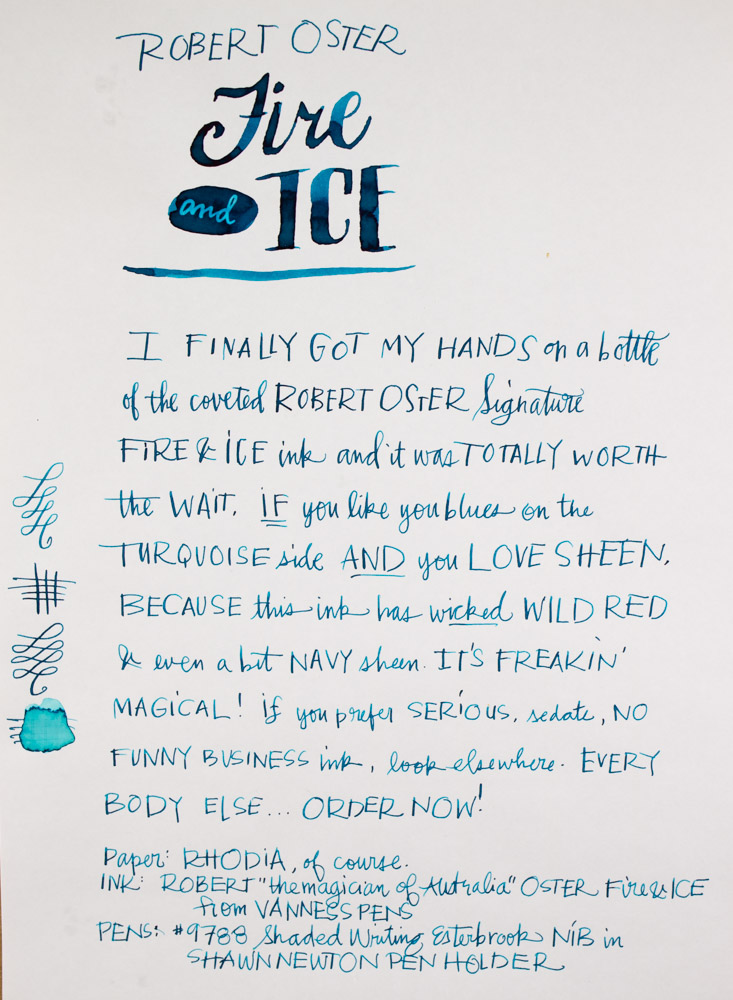 ROBERT OSTER
Fire
and ICE
I FINALLY GOT MY HANDS on a bottle
of the coveted ROBERT OSTER Signature
FIRE & ICE ink and it was TOTALLY WORTH
the WAIT. IF you like you blues on the
TURQUOISE side AND you LOVE SHEEN.
BECAUSE this ink has wicked WILD RED
& even a bit NAVY sheen. IT'S FREAKIN'
MAGICAL! if you prefer SERIOUS, sedate, NO
FUNNY BUSINESS ink, look elsewhere. EVERY
BODY ELSE... ORDER NOW!
Paper: RHODIA, of course.
INK: ROBERT "the magician of Australia" OSTER Fire & ICE
from VANNESS PENS
PENS: #9788 Shaded Writing Esterbrook NIB in
SHAWN NEWTON PEN HOLDER